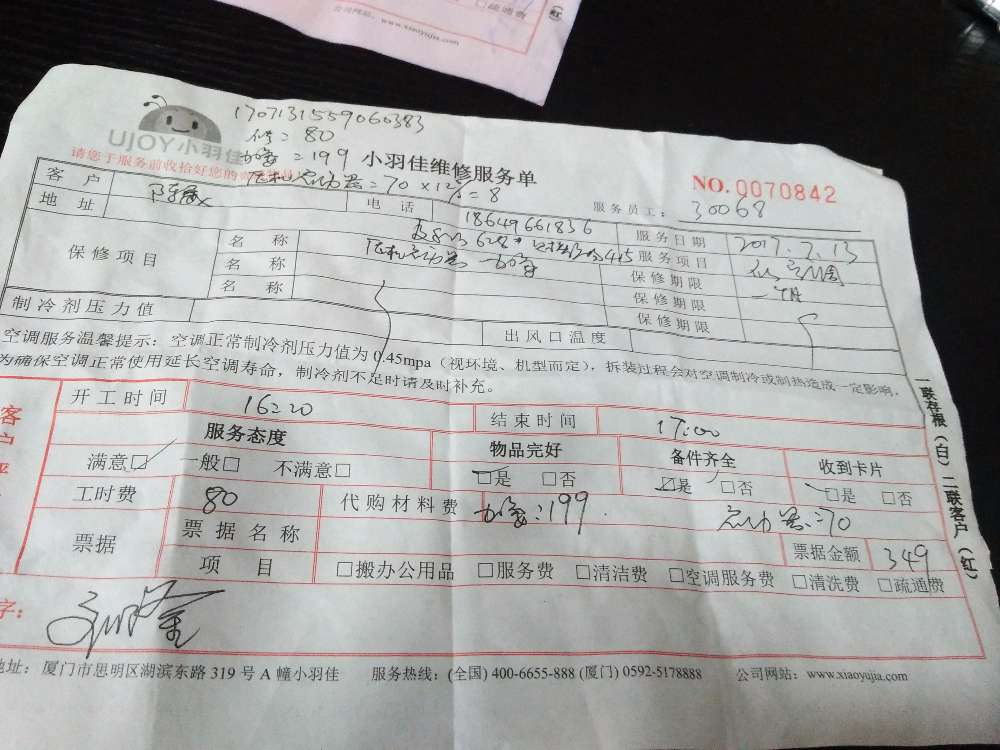 疏通费
(红)
www.xiaoyujia.com
1707131559060383
修=80
=199
UJOY小羽佳
小羽佳维修服务单
NO.0070842
=70×12%=8
服务员工: 30068
客户
电话 18649661836
服务日期 2017.7.13
地址
保修项目
名称
服务项目
名称
保修期限
名称
保修期限
保修期限
制冷剂压力值
出风口温度
空调服务温馨提示: 空调正常制冷剂压力值为0.45mpa(视环境、机型而定),拆装过程会对空调制冷或制热造成一定影响,
为确保空调正常使用延长空调寿命,制冷剂不足时请及时补充。
开工时间 16:20
结束时间 17:00
服务态度
物品完好
备件齐全
收到卡片
满意☑ 一般□ 不满意□
□是 □否
☑是 □否
□是 □否
工时费 80
代购材料费 :199
=70
票据
票据名称
票据金额 349
项目
□搬办公用品 □服务费 □清洁费 □空调服务费 □清洗费 □疏通费
字:
地址: 厦门市思明区湖滨东路 319 号 A 幢小羽佳
服务热线: (全国) 400-6655-888 (厦门) 0592-5178888
公司网站: www.xiaoyujia.com
一联存根(白) 二联客户(红)